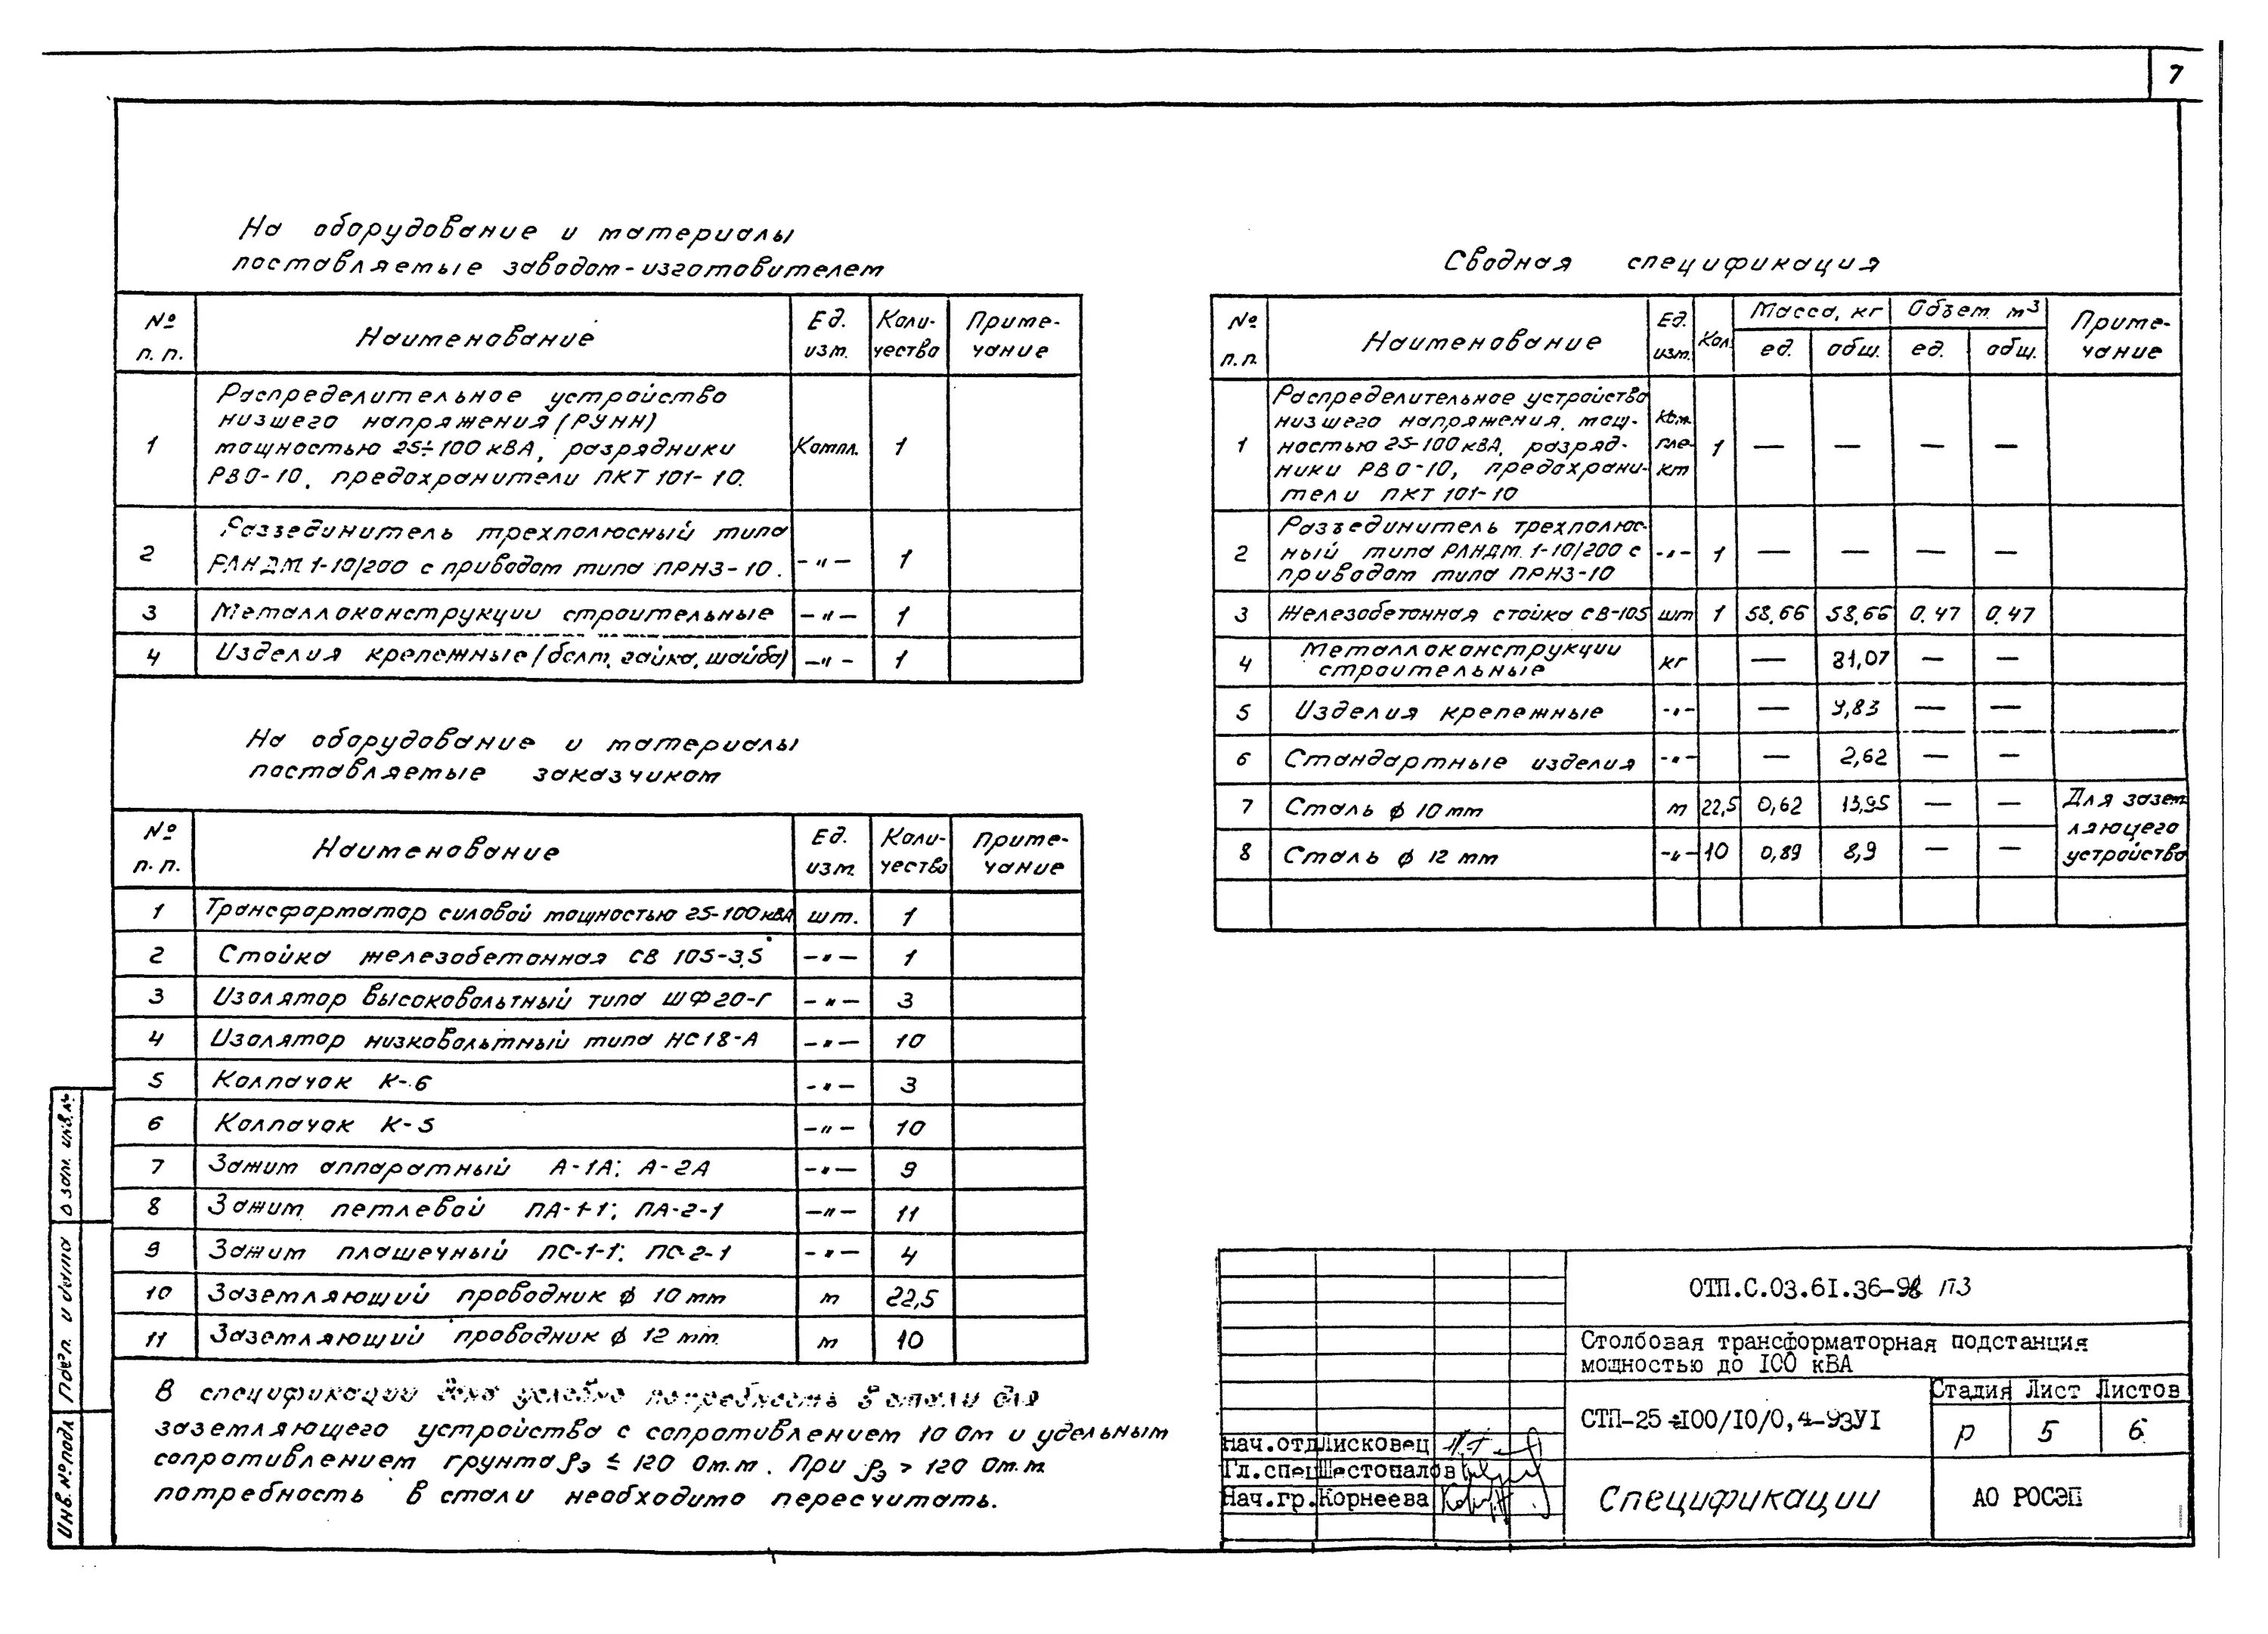 7
На оборудование и материалы
поставляемые заводом-изготовителем
№ п.п. Наименование Ед. изм. Коли-чество Приме-чание
1 Распределительное устройство
низшего напряжения (РУНН)
мощностью 25÷100 кВА, разрядники Компл. 1
РВО-10, предохранители ПКТ 101-10.
2 Разъединитель трехполюсный типа
РЛНДМ 1-10/200 с приводом типа ПРНЗ-10. -"- 1
3 Металлоконструкции строительные -"- 1
4 Изделия крепежные (болт, гайка, шайба) -"- 1
На оборудование и материалы
поставляемые заказчиком
№ п.п. Наименование Ед. изм. Коли-чество Приме-чание
1 Трансформатор силовой мощностью 25-100 кВА шт. 1
2 Стойка железобетонная СВ 105-3,5 -"- 1
3 Изолятор высоковольтный типа ШФ20-Г -"- 3
4 Изолятор низковольтный типа НС18-А -"- 10
5 Колпачок К-6 -"- 3
6 Колпачок К-5 -"- 10
7 Зажим аппаратный А-1А; А-2А -"- 9
8 Зажим петлевой ПА-1-1; ПА-2-1 -"- 11
9 Зажим плашечный ПС-1-1; ПС-2-1 -"- 4
10 Заземляющий проводник ϕ 10 мм м 22,5
11 Заземляющий проводник ϕ 12 мм м 10
В спецификации дана условно потребность в стали для
заземляющего устройства с сопротивлением 10 Ом и удельным
сопротивлением грунта ρэ ≤ 120 Ом.м. При ρэ > 120 Ом.м
потребность в стали необходимо пересчитать.
Сводная спецификация
№ п.п. Наименование Ед. изм. Кол. Масса, кг ед. общ. Объем м³ ед. общ. Приме-чание
1 Распределительное устройство
низшего напряжения, мощ- ком-
ностью 25-100 кВА, разряд- пле- 1 — — — —
ники РВО-10, предохрани- кт
тели ПКТ 101-10
2 Разъединитель трехполюс-
ный типа РЛНДМ 1-10/200 с -"- 1 — — — —
приводом типа ПРНЗ-10
3 Железобетонная стойка СВ-105 шт 1 58,66 58,66 0,47 0,47
4 Металлоконструкции
строительные кг — 81,07 — —
5 Изделия крепежные -"- — 9,83 — —
6 Стандартные изделия -"- — 2,62 — —
7 Сталь ϕ 10 мм м 22,5 0,62 13,95 — — Для зазем-
ляющего
8 Сталь ϕ 12 мм -"- 10 0,89 8,9 — — устройства
ОТП.С.03.61.36-98 ПЗ
Столбовая трансформаторная подстанция
мощностью до 100 кВА
СТП-25÷100/10/0,4-93У1
Стадия Лист Листов
Р 5 6
Нач.отд Лисковец
Гл.спец Шестопалов
Нач.гр. Корнеева
Спецификации
АО РОСЭП
Взам. инв.№
Подп. и дата
Инв.№ подл